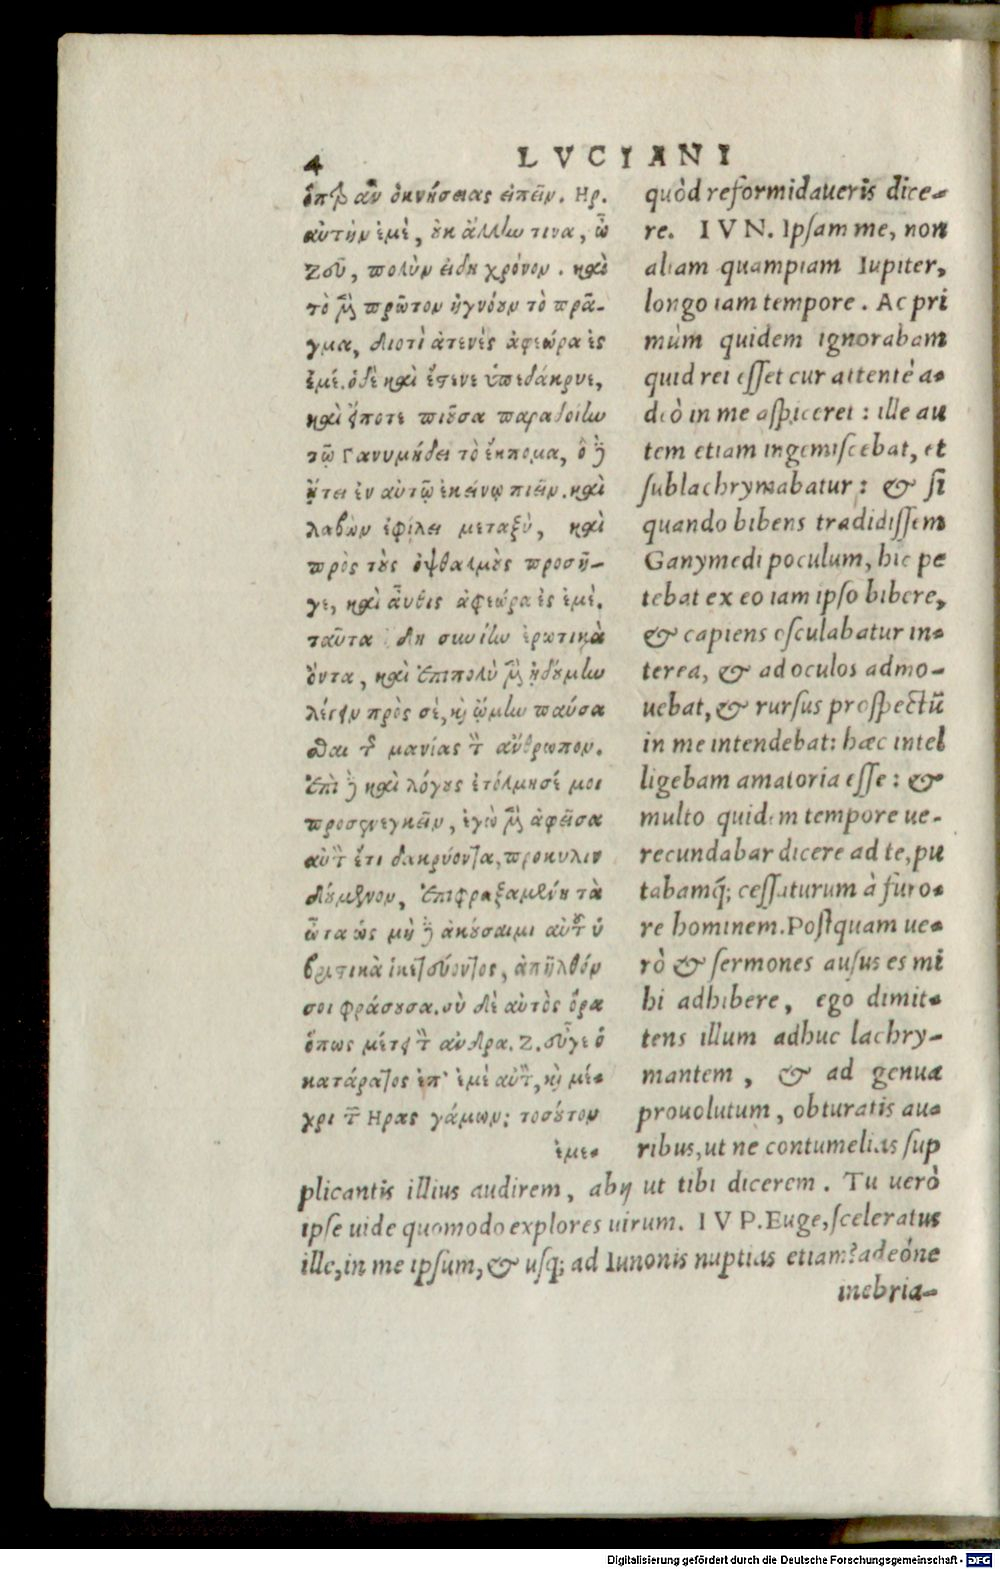 4 LVCIANI
ὅπερ ἂν ὀκνήσειας εἰπεῖν. Ηρ.
αὐτὴν ἐμὲ, οὐκ ἄλλην τινα, ὦ
Ζεῦ, πολὺν ἤδη χρόνον. καὶ
τὸ μὲν πρῶτον ἠγνόουν τὸ πρᾶ-
γμα, διοτὶ ἀτενὲς ἀφεώρα ἐς
ἐμέ. ὁ δὲ καὶ ἔστενε ὑπεδάκρυε,
καὶ εἴποτε πιοῦσα παραδοίην
τῷ Γανυμήδει τὸ ἔκπομα, ὁ δὲ
ᾔτει ἐν αὐτῷ ἐκείνῳ πιεῖν. καὶ
λαβὼν ἐφίλει μεταξὺ, καὶ
πρὸς τοὺς ὀφθαλμοὺς προσῆ-
γε, καὶ αὖθις ἀφεώρα ἐς ἐμέ.
ταῦτα δὴ συνίην ἐρωτικὰ
ὄντα, καὶ ἐπιπολὺ μὲν ᾐδούμην
λέγειν πρὸς σὲ, καὶ ᾤμην παύσα
σθαι τῆς μανίας τὸν ἄνθρωπον.
ἐπεὶ δὲ καὶ λόγους ἐτόλμησέ μοι
προσενεγκεῖν, ἐγὼ μὲν ἀφεῖσα
αὐτὸν ἔτι δακρύοντα, προκυλιν
δούμενον, ἐπιφραξαμένη τὰ
ὦτα ὡς μὴ δὲ ἀκούσαιμι αὐτοῦ ὑ
βριστικὰ ἱκετεύοντος, ἀπῆλθόν
σοι φράσουσα. σὺ δὲ αὐτὸς ὅρα
ὅπως μέτει τὸν ἄνδρα. Ζ. εὖγε ὁ
κατάρατος ἐπ' ἐμὲ αὐτὸν, καὶ μέ-
χρι τῶν Ηρας γάμων; τοσοῦτον
ἐμε-
quòd reformidaueris dice-
re. IVN. Ipsam me, non
aliam quampiam Iupiter,
longo iam tempore. Ac pri
mùm quidem ignorabam
quid rei esset cur attentè a-
deò in me aspiceret: ille au
tem etiam ingemiscebat, et
sublachrymabatur: & si
quando bibens tradidissem
Ganymedi poculum, hic pe
tebat ex eo iam ipso bibere,
& capiens osculabatur in-
terea, & ad oculos admo-
uebat, & rursus prospectū
in me intendebat: hæc intel
ligebam amatoria esse: &
multo quidem tempore ue-
recundabar dicere ad te, pu
tabamq́; cessaturum à furo-
re hominem. Postquam ue-
rò & sermones ausus es mi
hi adhibere, ego dimit-
tens illum adhuc lachry-
mantem, & ad genua
prouolutum, obturatis au-
ribus, ut ne contumelias sup
plicantis illius audirem, abij ut tibi dicerem. Tu uerò
ipse uide quomodo explores uirum. IVP. Euge, sceleratus
ille, in me ipsum, & usq; ad Iunonis nuptias etiam? adeóne
inebria-
Digitalisierung gefördert durch die Deutsche Forschungsgemeinschaft - DFG